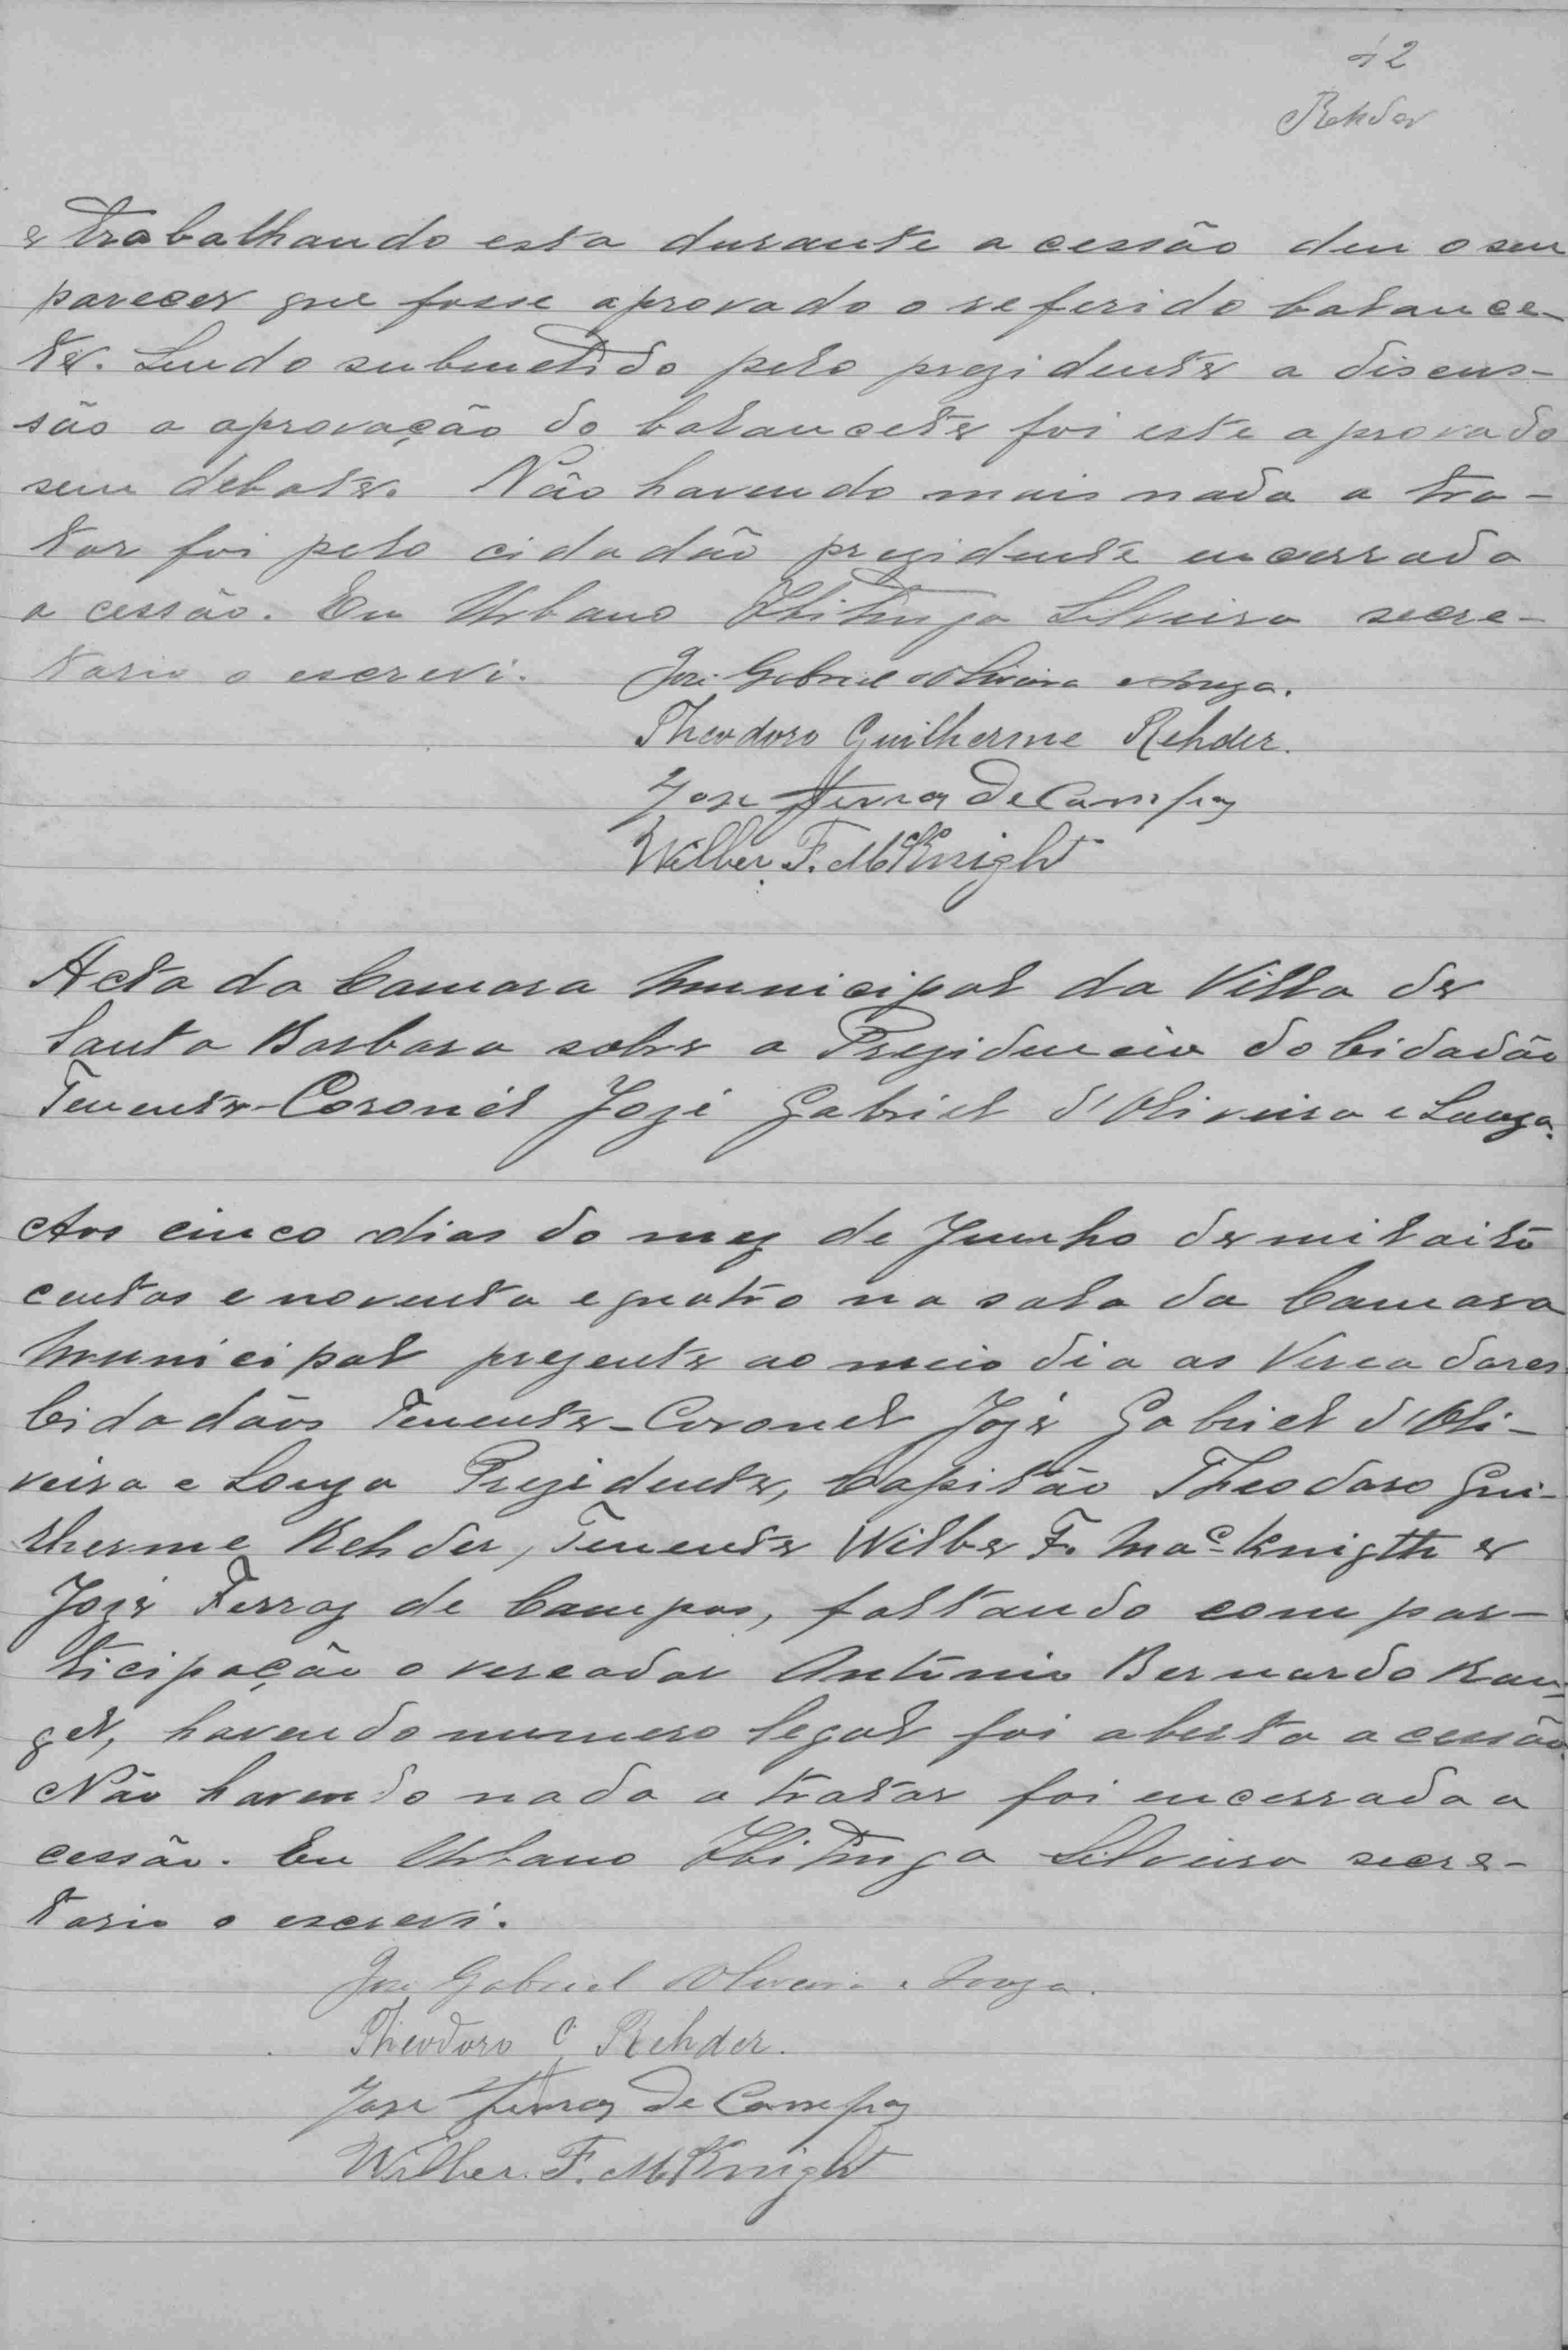 42
Rehder
e trabalhando esta durante a cessão deu o seu
parecer que fosse aprovado o referido balance-
te. Sendo submetido pelo prezidente a discus-
são a aprovação do balancete foi este aprovado
sem debate. Não havendo mais nada a tra-
tar foi pelo cidadão prezidente encerrada
a cessão. Eu Urbano Ibitinga Silveira secre-
tario o escrevi. José Gabriel d'Oliveira e Souza.
Theodoro Guilherme Rehder.
Jose Ferraz de Campos
Wilber F. McKnight
Acta da Camara Municipal da Villa de
Santa Barbara sobre a Prezidencia do Cidadão
Tenente-Coronel Jozé Gabriel d'Oliveira e Souza.
Aos cinco dias do mez de Junho de mil oito
centos e noventa e quatro na sala da Camara
Municipal prezente ao meio dia os Vereadores
Cidadãos Tenente-Coronel Jozé Gabriel d'Oli-
veira e Souza Prezidente, Capitão Theodoro Gui-
lherme Rehder, Tenente Wilber F. Mac-Knigth e
Jozé Ferraz de Campos, faltando com par-
ticipação o vereador Antônio Bernardo Ran-
gel, havendo numero legal foi aberta a cessão
Não havendo nada a tratar foi encerrada a
cessão. Eu Urbano Ibitinga Silveira secre-
tario o escrevi.
José Gabriel d'Oliveira e Souza.
Theodoro G Rehder.
Jose Ferraz de Campos
Wilber. F. McKnight